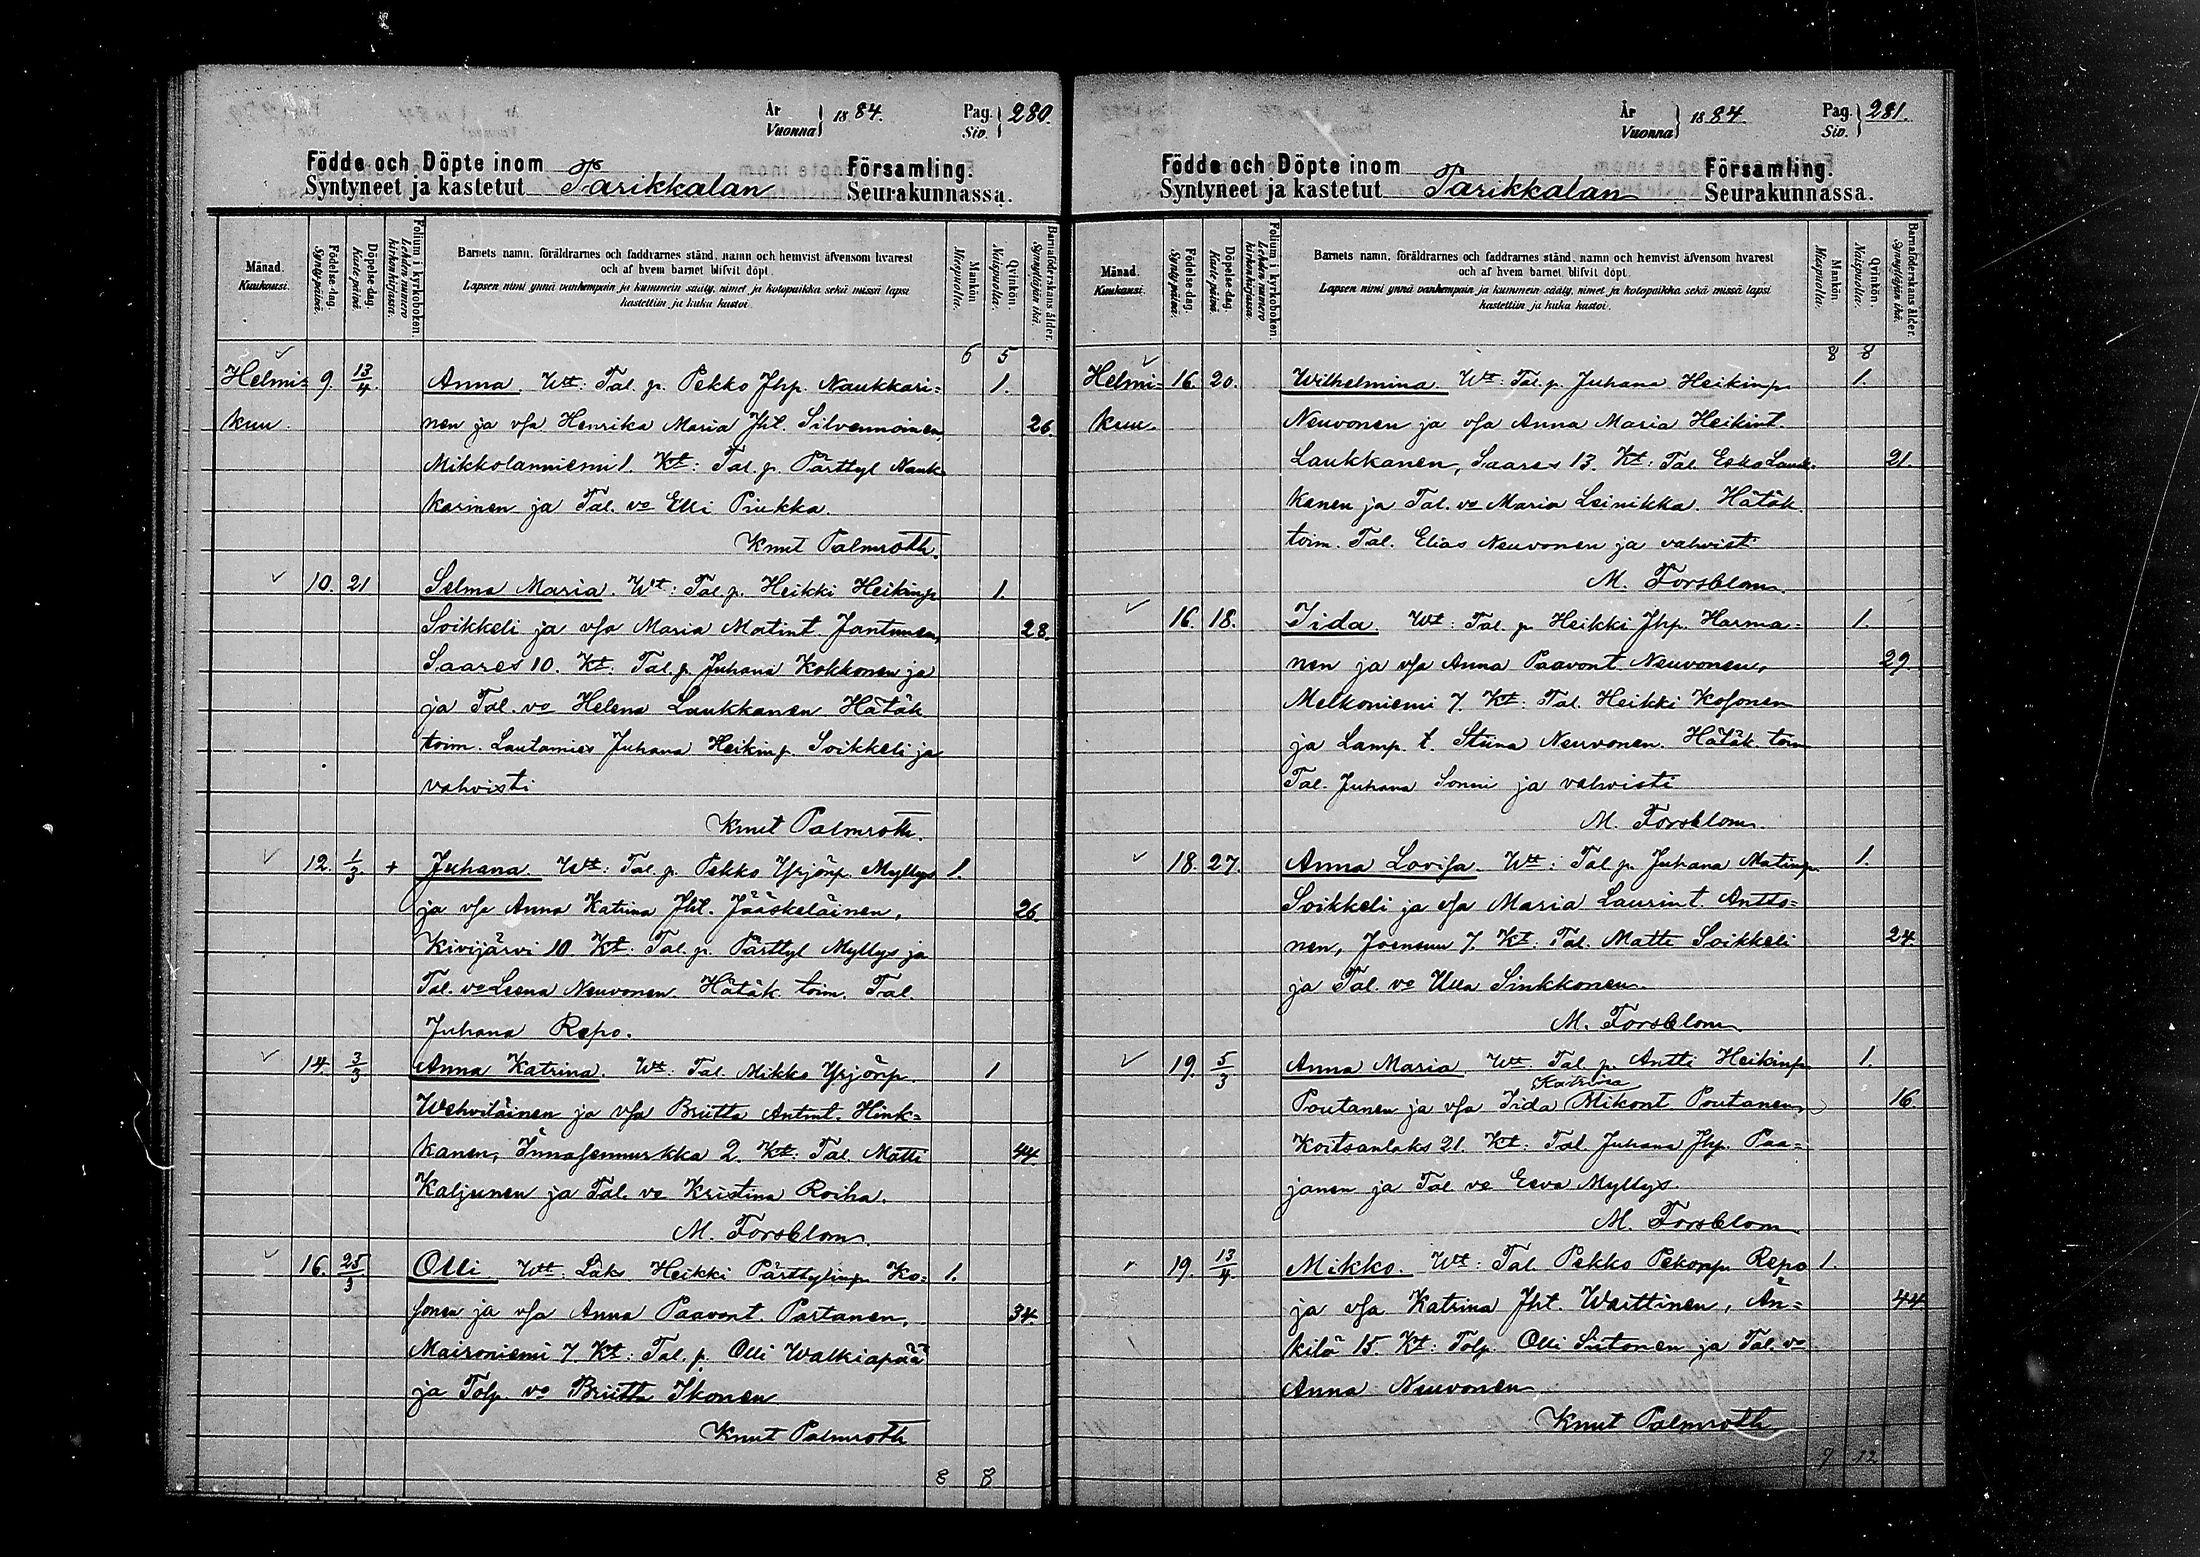 År
Vuonna } 1884.
Pag.
Siv. } 280.
Födde och Döpte inom
Syntyneet ja kastetut Parikkalan Församling.
Seurakunnassa.
Månad.
Kuukausi.
Födelse-dag.
Syntypäivä.
Döpelse-dag.
Kastepäivä.
Folium i kyrkoboken.
Lehden numero kirkonkirjassa.
Barnets namn, föräldrarnes och faddrarnes stånd, namn och hemvist äfvensom hvarest
och af hvem barnet blifvit döpt.
Lapsen nimi ynnä vanhempain ja kummein sääty, nimet ja kotopaikka sekä missä lapsi
kastettiin ja kuka kastoi.
Mankön.
Miespuolia.
Qvinkön.
Naispuolia.
Barnaföderskans ålder.
Synnyttäjän ikä.
6 5
Helmi= 9. 13/4 Anna. Wtt: Tal. p. Pekko Jhp. Naukkari= 1.
kuu. nen ja vsa Henrika Maria Jht. Silvennoinen, 26.
Mikkolanniemi 1. Kt: Tal. p. Pärttyl Nauk=
karinen ja Tal. vo Elli Piukka.
Knut Palmroth.
10. 21 Selma Maria. Wt: Tal p. Heikki Heikinp 1.
Soikkeli ja vsa Maria Matint. Jantunen, 28.
Saares 10. Kt. Tal. p. Juhana Kokkonen ja
ja Tal. vo Helena Laukkanen Hätäk.
toim. Lautamies Juhana Heikinp. Soikkeli ja
vahvisti
Knut Palmroth.
12. 1/3. + Juhana. Wtt: Tal. p. Pekko Yrjönp. Myllys 1.
ja vsa Anna Katrina Jht. Jääskeläinen, 26
Kivijärvi 10 Kt: Tal. p. Pärttyl Myllys ja
Tal. vo Leena Neuvonen. Hätäk. toim. Tal.
Juhana Repo.
14. 3/3 Anna Katrina. Wt: Tal. Mikko Yrjönp. 1
Wehviläinen ja vsa Briitta Antint. Hink=
kanen, Innasennurkka 2. Kt: Tal. Matti 44.
Kaljunen ja Tal. vo Kristina Roiha.
M. Forsblom.
16. 25/3. Olli Wtt: Läks Heikki Pärttylinp Ko= 1.
sonen ja vsa Anna Paavont. Partanen, 34.
Maironiemi 7. Kt: Tal. p. Olli Walkiapää
ja Tolp. vo Briitta Ikonen
Knut Palmroth
8 8
År
Vuonna } 1884.
Pag.
Siv. } 281.
Födde och Döpte inom
Syntyneet ja kastetut Parikkalan Församling.
Seurakunnassa.
Månad.
Kuukausi.
Födelse-dag.
Syntypäivä.
Döpelse-dag.
Kastepäivä.
Folium i kyrkoboken.
Lehden numero kirkonkirjassa.
Barnets namn, föräldrarnes och faddrarnes stånd, namn och hemvist äfvensom hvarest
och af hvem barnet blifvit döpt.
Lapsen nimi ynnä vanhempain ja kummein sääty, nimet ja kotopaikka sekä missä lapsi
kastettiin ja kuka kastoi.
Mankön.
Miespuolia.
Qvinkön.
Naispuolia.
Barnaföderskans ålder.
Synnyttäjän ikä.
8 8
Helmi= 16. 20. Wilhelmina Wtt: Tal. p. Juhana Heikinp 1.
kuu. Neuvonen ja vsa Anna Maria Heikint.
Laukkanen, Saares 13. Kt: Tal Esko Lauk= 21.
kanen ja Tal. vo Maria Leinikka. Hätäk.
toim. Tal. Elias Neuvonen ja vahvist
M. Forsblom.
16. 18. Iida Wt: Tal. p Heikki Jhp. Harma= 1.
nen ja vsa Anna Paavont Neuvonen, 29.
Melkoniemi 7. Kt: Tal. Heikki Kosonen
ja Lamp. t. Stiina Neuvonen. Hätäk. toim
Tal. Juhana Sonni ja vahvisti
M. Forsblom.
18. 27. Anna Lovisa. Wtt: Tal p. Juhana Matinp. 1.
Soikkeli ja vsa Maria Laurint. Antto=
nen, Joensuu 7. Kt: Tal. Matti Soikkeli 24
ja Tal. vo Ulla Sinkkonen.
M. Forsblom
19. 5/3 Anna Maria Wtt. Tal. p. Antti Heikinp. 1.
Katrina
Poutanen ja vsa Iida Mikont. Poutanen, 16.
Koitsanlaks 21. Kt: Tal. Juhana Jhp. Paa=
janen ja Tal vo Eeva Myllys.
M. Forsblom
19. 13/4. Mikko. Wt: Tal Pekko Pekonp Repo 1.
ja vsa Katrina Jht. Waittinen, An= 44
kilä 15. Kt: Tolp. Olli Siitonen ja Tal. vo
Anna Neuvonen
Knut Palmroth
9 12